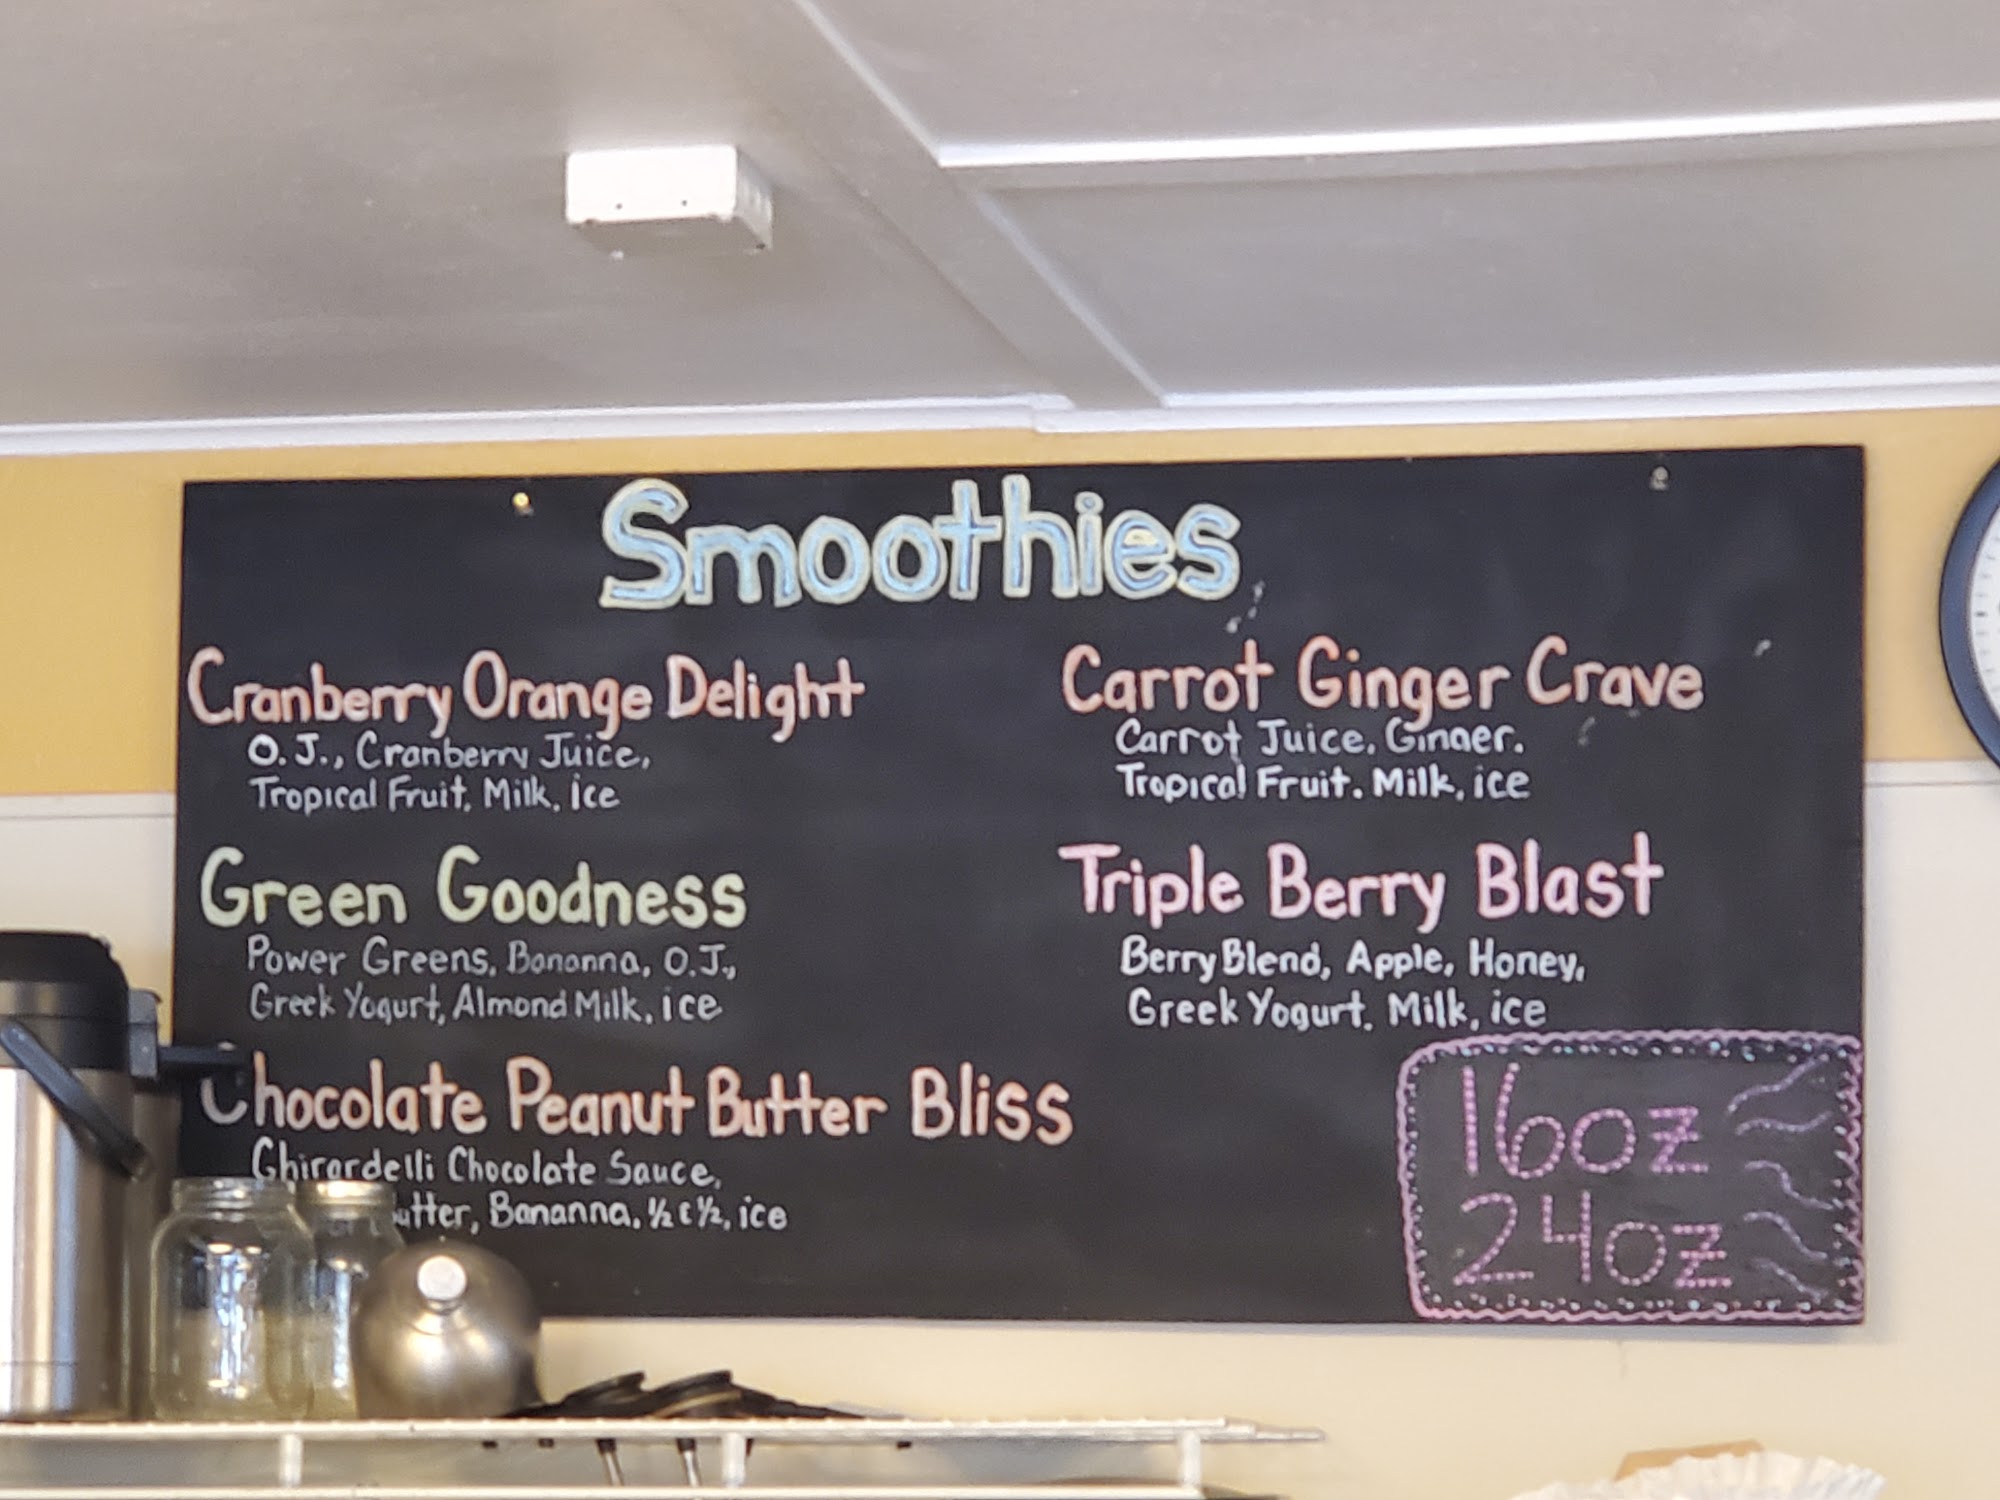 Smoothies
Cranberry Orange Delight
O.J., Cranberry Juice,
Tropical Fruit, Milk, ice
Green Goodness
Power Greens, Bananna, O.J.,
Greek Yogurt, Almond Milk, ice
Chocolate Peanut Butter Bliss
Ghirardelli Chocolate Sauce,
utter, Bananna, ½ & ½, ice
Carrot Ginger Crave
Carrot Juice, Ginger,
Tropical Fruit, Milk, ice
Triple Berry Blast
Berry Blend, Apple, Honey,
Greek Yogurt, Milk, ice
16oz
24oz